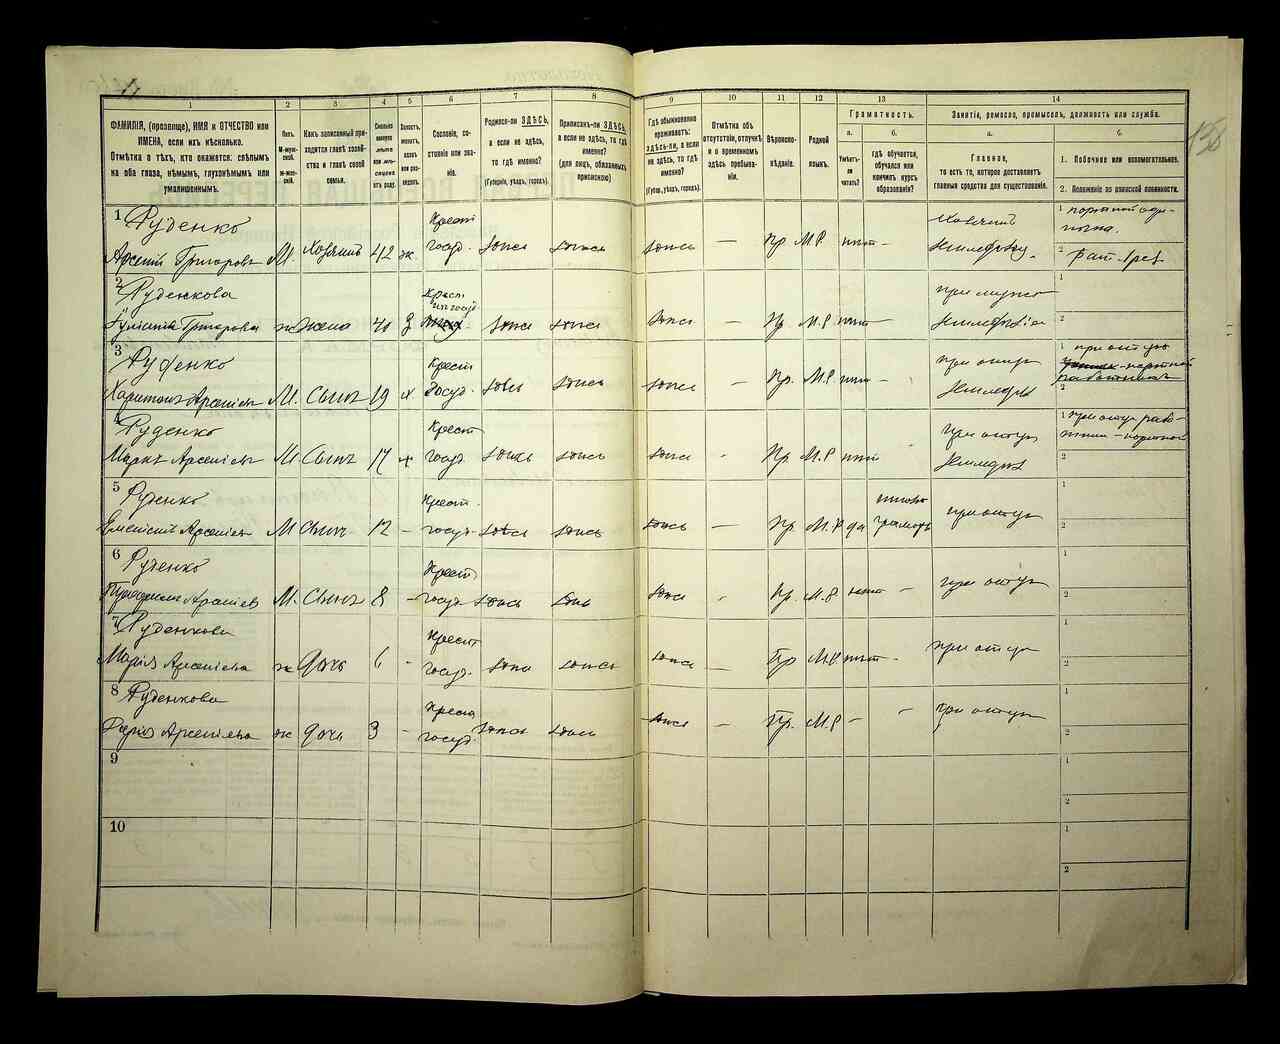 158
1 2 3 4 5 6 7 8 9 10 11 12 13 14
ФАМИЛІЯ, (прозвище), ИМЯ и ОТЧЕСТВО или ИМЕНА, если ихъ нѣсколько.
Отмѣтка о тѣхъ, кто окажется: слѣпымъ на оба глаза, нѣмымъ, глухонѣмымъ или умалишеннымъ.
Полъ.
М-мужской.
Ж-женскій.
Какъ записанный приходится главѣ хозяйства и главѣ своей семьи.
Сколько минуло лѣтъ или мѣсяцевъ отъ роду.
Холостъ, женатъ, вдовъ или разведенъ.
Сословіе, состояніе или званіе.
Родился-ли ЗДѢСЬ, а если не здѣсь, то гдѣ именно?
(Губернія, уѣздъ, городъ).
Приписанъ-ли ЗДѢСЬ, а если не здѣсь, то гдѣ именно?
(для лицъ, обязанныхъ припискою)
Гдѣ обыкновенно проживаетъ: здѣсь-ли, а если не здѣсь, то гдѣ именно?
(Губер., уѣздъ, городъ).
Отмѣтка объ отсутствіи, отлучкѣ и о временномъ здѣсь пребываніи.
Вѣроисповѣданіе.
Родной языкъ.
Грамотность.
а.
Умѣетъ-ли читать?
б.
гдѣ обучается, обучался или кончилъ курсъ образованія?
Занятіе, ремесло, промыселъ, должность или служба.
а.
Главное,
то есть то, которое доставляетъ главныя средства для существованія.
б.
1. Побочное или вспомогательное.
2. Положеніе по воинской повинности.
1 Руденко
Арсеній Григорьевъ М. Хозяинъ 42 ж. Крест госуд. здѣсь здѣсь здѣсь — Пр М.Р. нѣт — Хозяинъ Земледѣлец 1 2
2 Руденкова
Григорова ж жена 40 З Крест из госуд. здѣсь здѣсь здѣсь — Пр. М.Р нѣт — при мужѣ 1 2
3 Руденко
Харитонъ Арсеніев М. Сынъ 19 х Крест Госуд. здѣсь здѣсь здѣсь — Пр. М.Р нѣт — при отцѣ 1 при отцѣ 2
4 Руденко
Маркъ Арсеніев М Сынъ 17 х Крест госуд. здѣсь здѣсь здѣсь — Пр. М.Р нѣт при отцѣ 1 при отцѣ 2
5 Руденко
Арсеніев М сынъ 12 - Крест. госуд. здѣсь здѣсь здѣсь — Пр М.Р да при отцѣ 1 2
6 Руденко
Арсеніев М. Сынъ 8 - Крест госуд. здѣсь здѣсь Пр. М.Р нѣт — при отцѣ 1 2
7 Руденкова
Марія Арсеніева ж дочь 6 - Крест госуд. здѣсь здѣсь здѣсь — Пр М.Р. нѣт - при отцѣ 1 2
8 Руденкова
Арсеніева ж дочь 3 - Крест госуд. здѣсь здѣсь здѣсь — Пр. М.Р — — при отцѣ 1 2
9 1 2
10 1 2